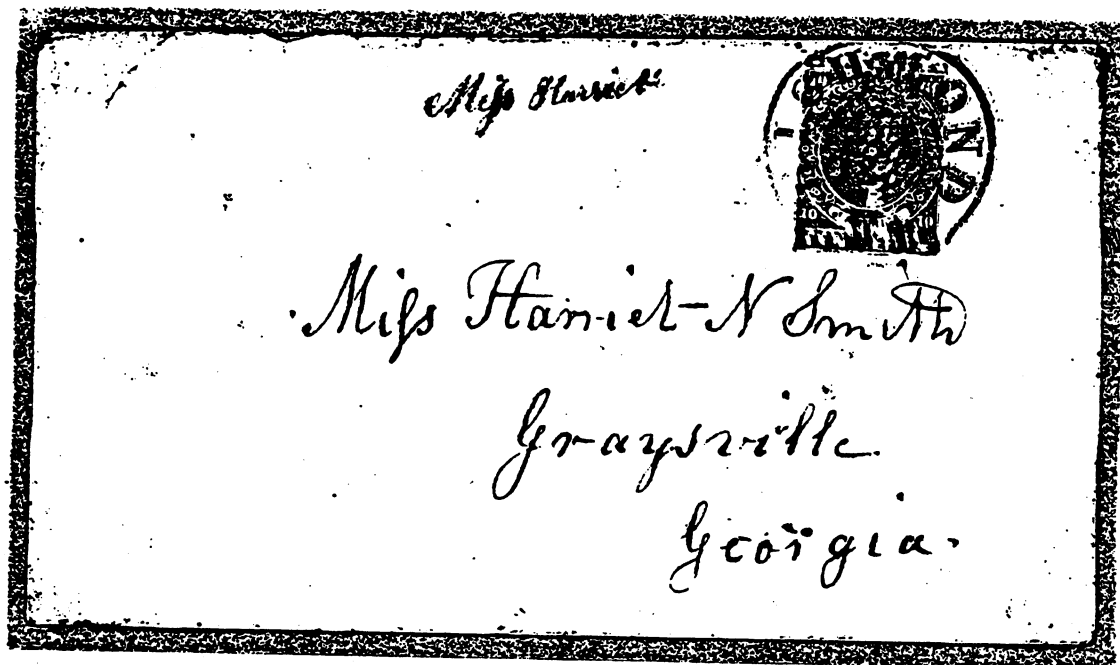 Miss Harriet
ICHMOND
10 10
Miss Harriet N Smith
Graysville
Georgia.